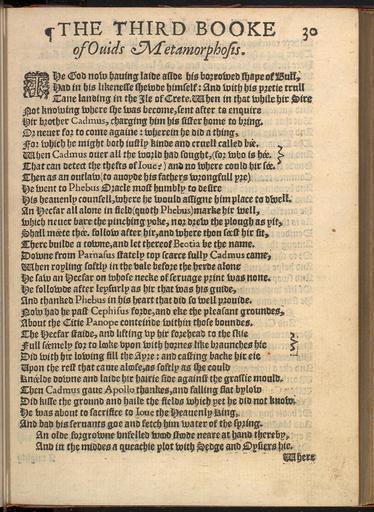 ¶THE THIRD BOOKE 30
of Ouids Metamorphosis.
THe God now hauing laide aside his borrowed shape of Bull,
Had in his likenesse shewde himself: And with his pretie trull
Tane landing in the Ile of Crete. When in that while hir Sire
Not knowing where she was become, sent after to enquire
Hir brother Cadmus, charging him his sister home to bring,
Or neuer for to come againe: wherein he did a thing,
For which he might both iustly kinde and cruell called be.
When Cadmus ouer all the world had sought, (for who is hée
That can detect the thefts of Ioue?) and no where could hir sée:
Then as an outlaw (to auoyde his fathers wrongfull yre)
He went to Phebus Oracle most humbly to desire
His heauenly counsell, where he would assigne him place to dwell.
An Hecfar all alone in field (quoth Phebus) marke hir well,
Which neuer bare the pinching yoke, nor drew the plough as yit,
Shall méete thée. follow after hir, and where thou séest hir sit,
There builde a towne, and let thereof Beotia be the name.
Downe from Parnasus stately top scarce fully Cadmus came,
When royling softly in the vale before the herde alone
He saw an Hecfar on whose necke of seruage print was none.
He followde after leysurly as hir that was his guide,
And thanked Phebus in his heart that did so well prouide.
Now had he past Cephisus forde, and eke the pleasant groundes,
About the Citie Panope conteinde within those boundes.
The Hecfar staide, and lifting vp hir forehead to the skie
Full séemely for to looke vpon with hornes like braunches hie
Did with hir lowing fill the Ayre: and casting backe hir eie
Upon the rest that came aloofe, as softly as she could
Knéelde downe and laide hir hairie side against the grassie mould.
Then Cadmus gaue Apollo thankes, and falling flat bylow
Did kisse the ground and haile the fields which yet he did not know.
He was about to sacrifice to Ioue the Heauenly King,
And bad his seruants goe and fetch him water of the spring.
An olde forgrowne vnfelled wood stoode neare at hand thereby,
And in the middes a queachie plot with Sedge and Osyers hie.
Where